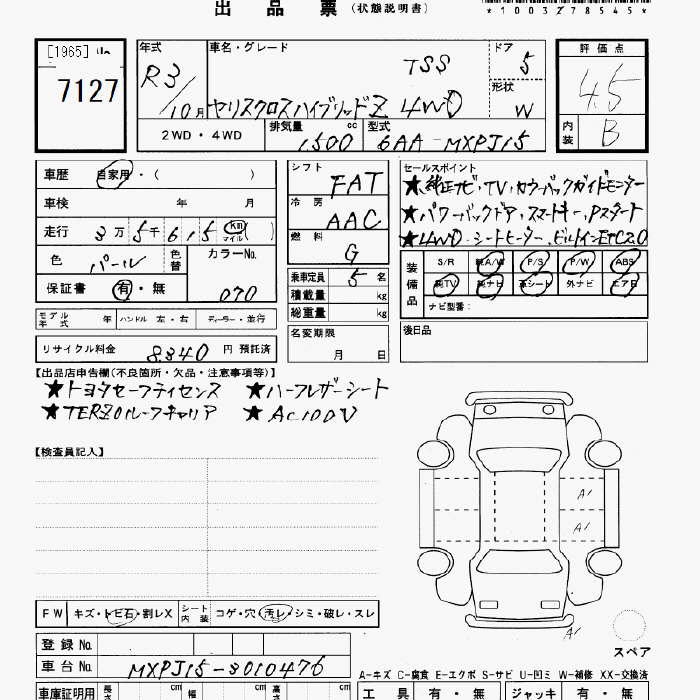 出品票 （状態説明書）
*1003278545*
[1965]
7127
年式 R3/10月
車名・グレード TSS
ヤリスクロスハイブリッドZ 4WD
ドア 5
形状 W
2WD・4WD
排気量 1500 cc
型式 6AA-MXPJ15
評価点 4.5
内装 B
車歴 自家用・（ ）
車検 年 月
走行 3万5千615 Km マイル
色 パール 色替
カラーNo. 070
保証書 有・無
シフト FAT
冷房 AAC
燃料 G
乗車定員 5名
積載量 kg
総重量 kg
名変期限 月 日
セールスポイント
★純正ナビ,TV,カラーバックガイドモニター
★パワーバックドア,スマートキー,Pスタート
★4WD シートヒーター,ビルトインETC2.0
装備品
S/R 純A/W P/S P/W ABS
純TV 純ナビ 革シート 外ナビ エアB
ナビ型番：
後日品
モデル年式 年 ハンドル 左・右 ディーラー・並行
リサイクル料金 8,340円 預託済
【出品店申告欄（不良箇所・欠品・注意事項等）】
★トヨタセーフティセンス ★ハーフレザーシート
★TERZOルーフキャリア ★AC100V
【検査員記入】
A1
A1
A1
スペア
FW キズ・トビ石・割レX
シート内装 コゲ・穴・汚レ・シミ・破レ・スレ
登録No.
車台No. MXPJ15-3010476
A-キズ C-腐食 E-エクボ S-サビ U-凹ミ W-補修 XX-交換済
車庫証明用 長さ cm 幅 cm 高さ cm
工具 有・無 ジャッキ 有・無